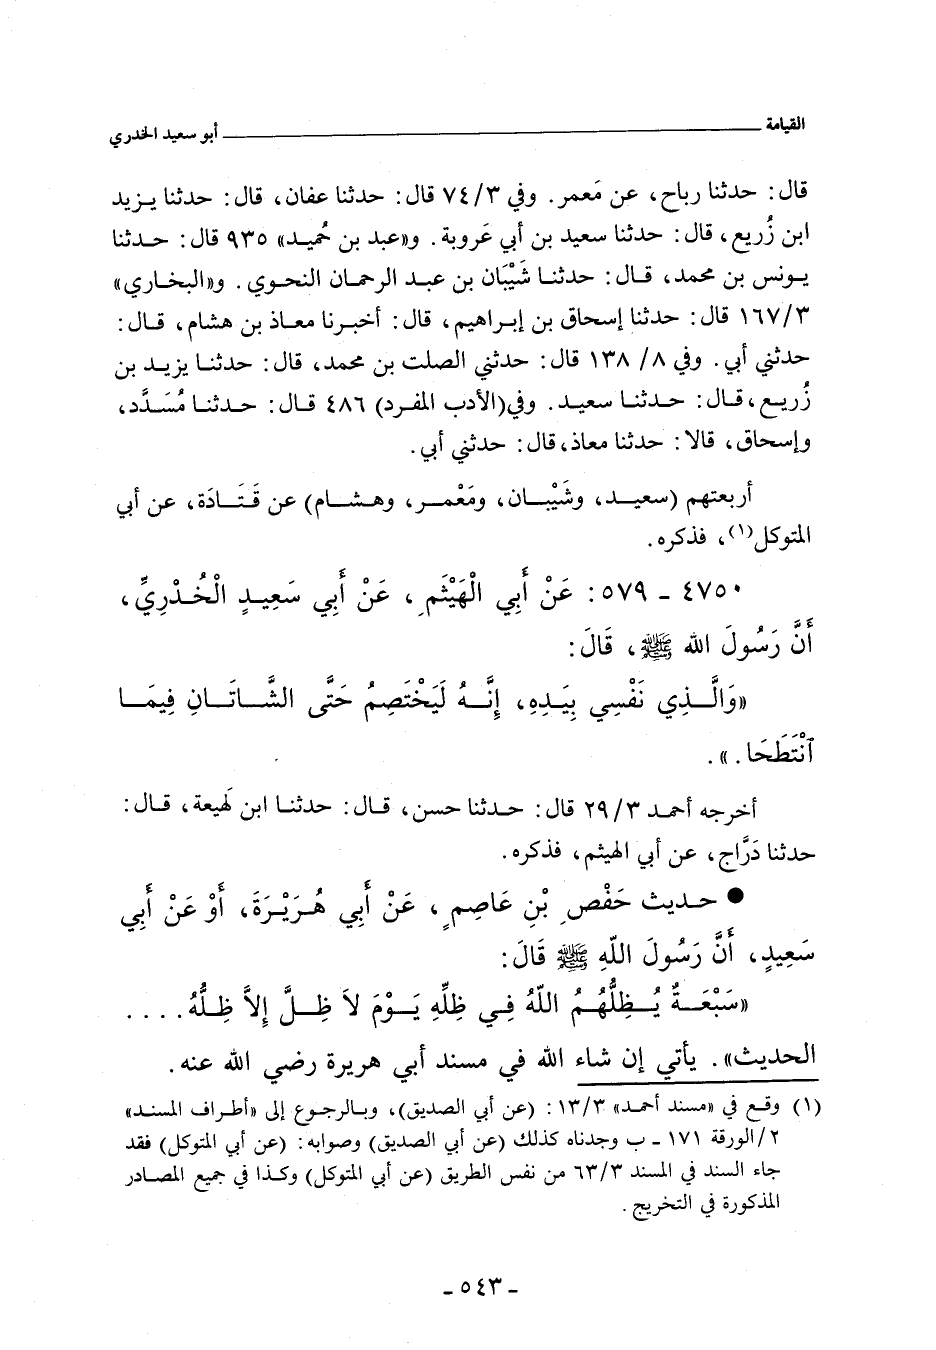 القيامة ــــــــــــــــــــــــــــــــــــــــــــــــــــــ أبو سعيد الخدري
قال: حدثنا رباح، عن مَعمر. وفي ٧٤/٣ قال: حدثنا عفان، قال: حدثنا يـزيد
ابن زُريع، قال: حدثنا سعيد بن أبي عَروبة. و«عبد بن حُميـد» ٩٣٥ قال: حـدثنا
يـونس بن محمد، قـال: حدثنـا شَيْبَان بن عبـد الرحمـان النحـوي. و«البخاري»
١٦٧/٣ قال: حدثنا إسحاق بن إبـراهيم، قال: أخبـرنا معـاذ بن هشام، قـال:
حدثني أبي. وفي ٨/ ١٣٨ قال: حدثني الصلت بن محمـد، قال: حـدثنـا يزيـد بن
زُريـع، قـال: حـدثنـا سعيـد. وفي(الأدب المفـرد) ٤٨٦ قـال: حـدثنـا مُسَـدَّد،
وإسحاق، قالا: حدثنا معاذ، قال: حدثني أبي.
أربعتهم (سعيـد، وشَيْبَـان، ومَعْمـر، وهشـام) عن قَتَـادَة، عن أبي
المتوكل(١)، فذكره.
٤٧٥٠ - ٥٧٩: عَنْ أَبِي الْهَيْثَمِ، عَنْ أَبِي سَعِيـدٍ الْخُـدْرِيِّ،
أَنَّ رَسُولَ الله ﷺ، قَالَ:
«وَالَّـذِي نَفْسِي بِيَـدِهِ، إِنَّـهُ لَيَخْتَصِمُ حَتَّى الشَّاتَـانِ فِيمَـا
ٱنْتَطَحَا.».
أخرجه أحمـد ٢٩/٣ قال: حـدثنا حسن، قـال: حدثنـا ابن لَهيعة، قـال:
حدثنا دَرَّاج، عن أبي الهيثم، فذكره.
● حـديث حَفْصِ بْنِ عَاصِمٍ، عَنْ أَبِي هُـرَيْـرَةَ، أَوْ عَنْ أَبِي
سَعِيدٍ، أَنَّ رَسُولَ اللّهِ ﷺ قَالَ:
«سَبْعَـةٌ يُـظِلُّهُـمُ اللّهُ فِـي ظِلِّهِ يَـوْمَ لاَ ظِـلَّ إِلاَّ ظِلُّهُ....
الحديث». يأتي إن شاء الله في مسند أبي هريرة رضي الله عنه.
(١) وقـع في «مسند أحمد» ١٣/٣: (عن أبي الصديق)، وبـالرجـوع إلى «أطـراف المسنـد»
٢/الورقة ١٧١ - ب وجدناه كذلك (عن أبي الصديق) وصوابه: (عن أبي المتوكل) فقد
جاء السند في المسند ٦٣/٣ من نفس الطريق (عن أبي المتوكل) وكـذا في جميع المصـادر
المذكورة في التخريج.
- ٥٤٣ -